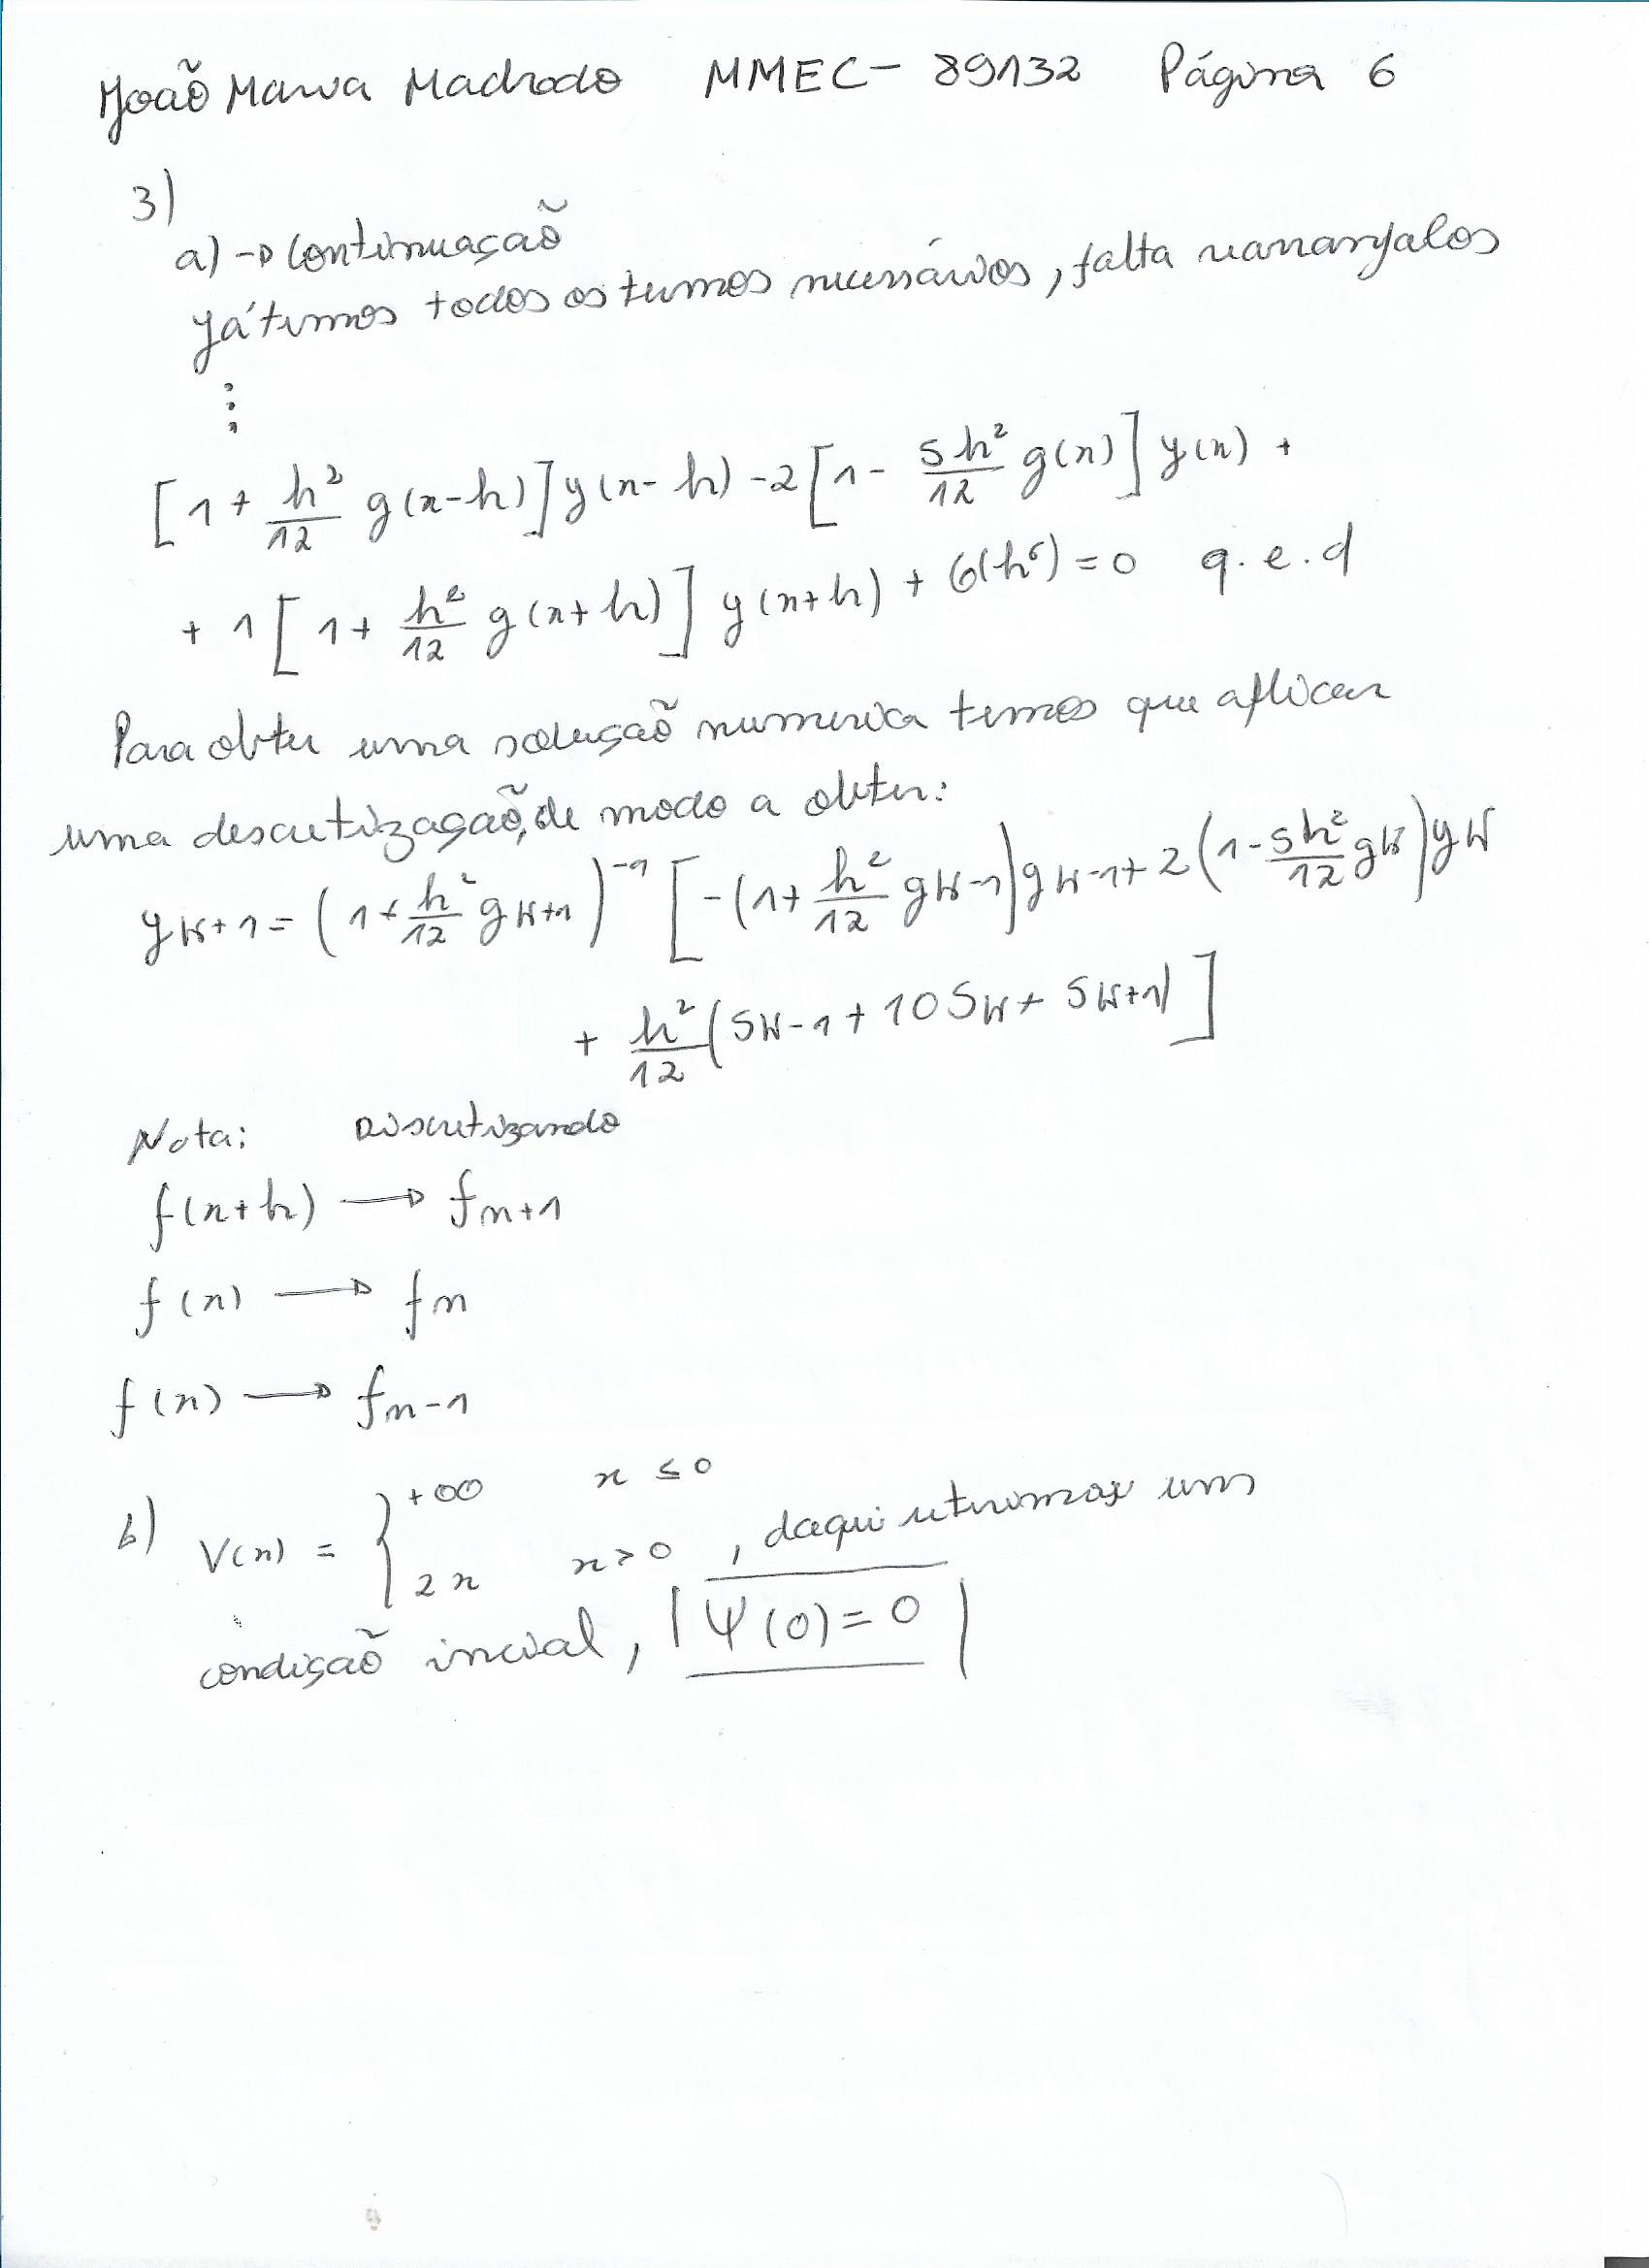 João Maria Machado MMEC- 89132 Página 6
3)
a) → Continuação
Já temos todos os termos necessários, falta rearranjalos
⋮
[1 + h²/12 g(x-h)] y(x-h) -2 [1 - 5h²/12 g(x)] y(x) +
+ 1 [1 + h²/12 g(x+h)] y(x+h) + O(h⁶) = 0 q.e.d
Para obter uma solução numerica temos que aplicar
uma descretização, de modo a obter:
yk+1 = (1 + h²/12 gk+1)⁻¹ [-(1 + h²/12 gk-1) gk-1 + 2 (1 - 5h²/12 gk) yk
+ h²/12 (Sk-1 + 10 Sk + Sk+1)]
Nota: Discretizando
f(x+h) → fn+1
f(x) → fn
f(x) → fn-1
b) V(x) = { +∞ x ≤ 0
2x x > 0 , daqui retiramos um
condição incial, |Ψ(0) = 0|